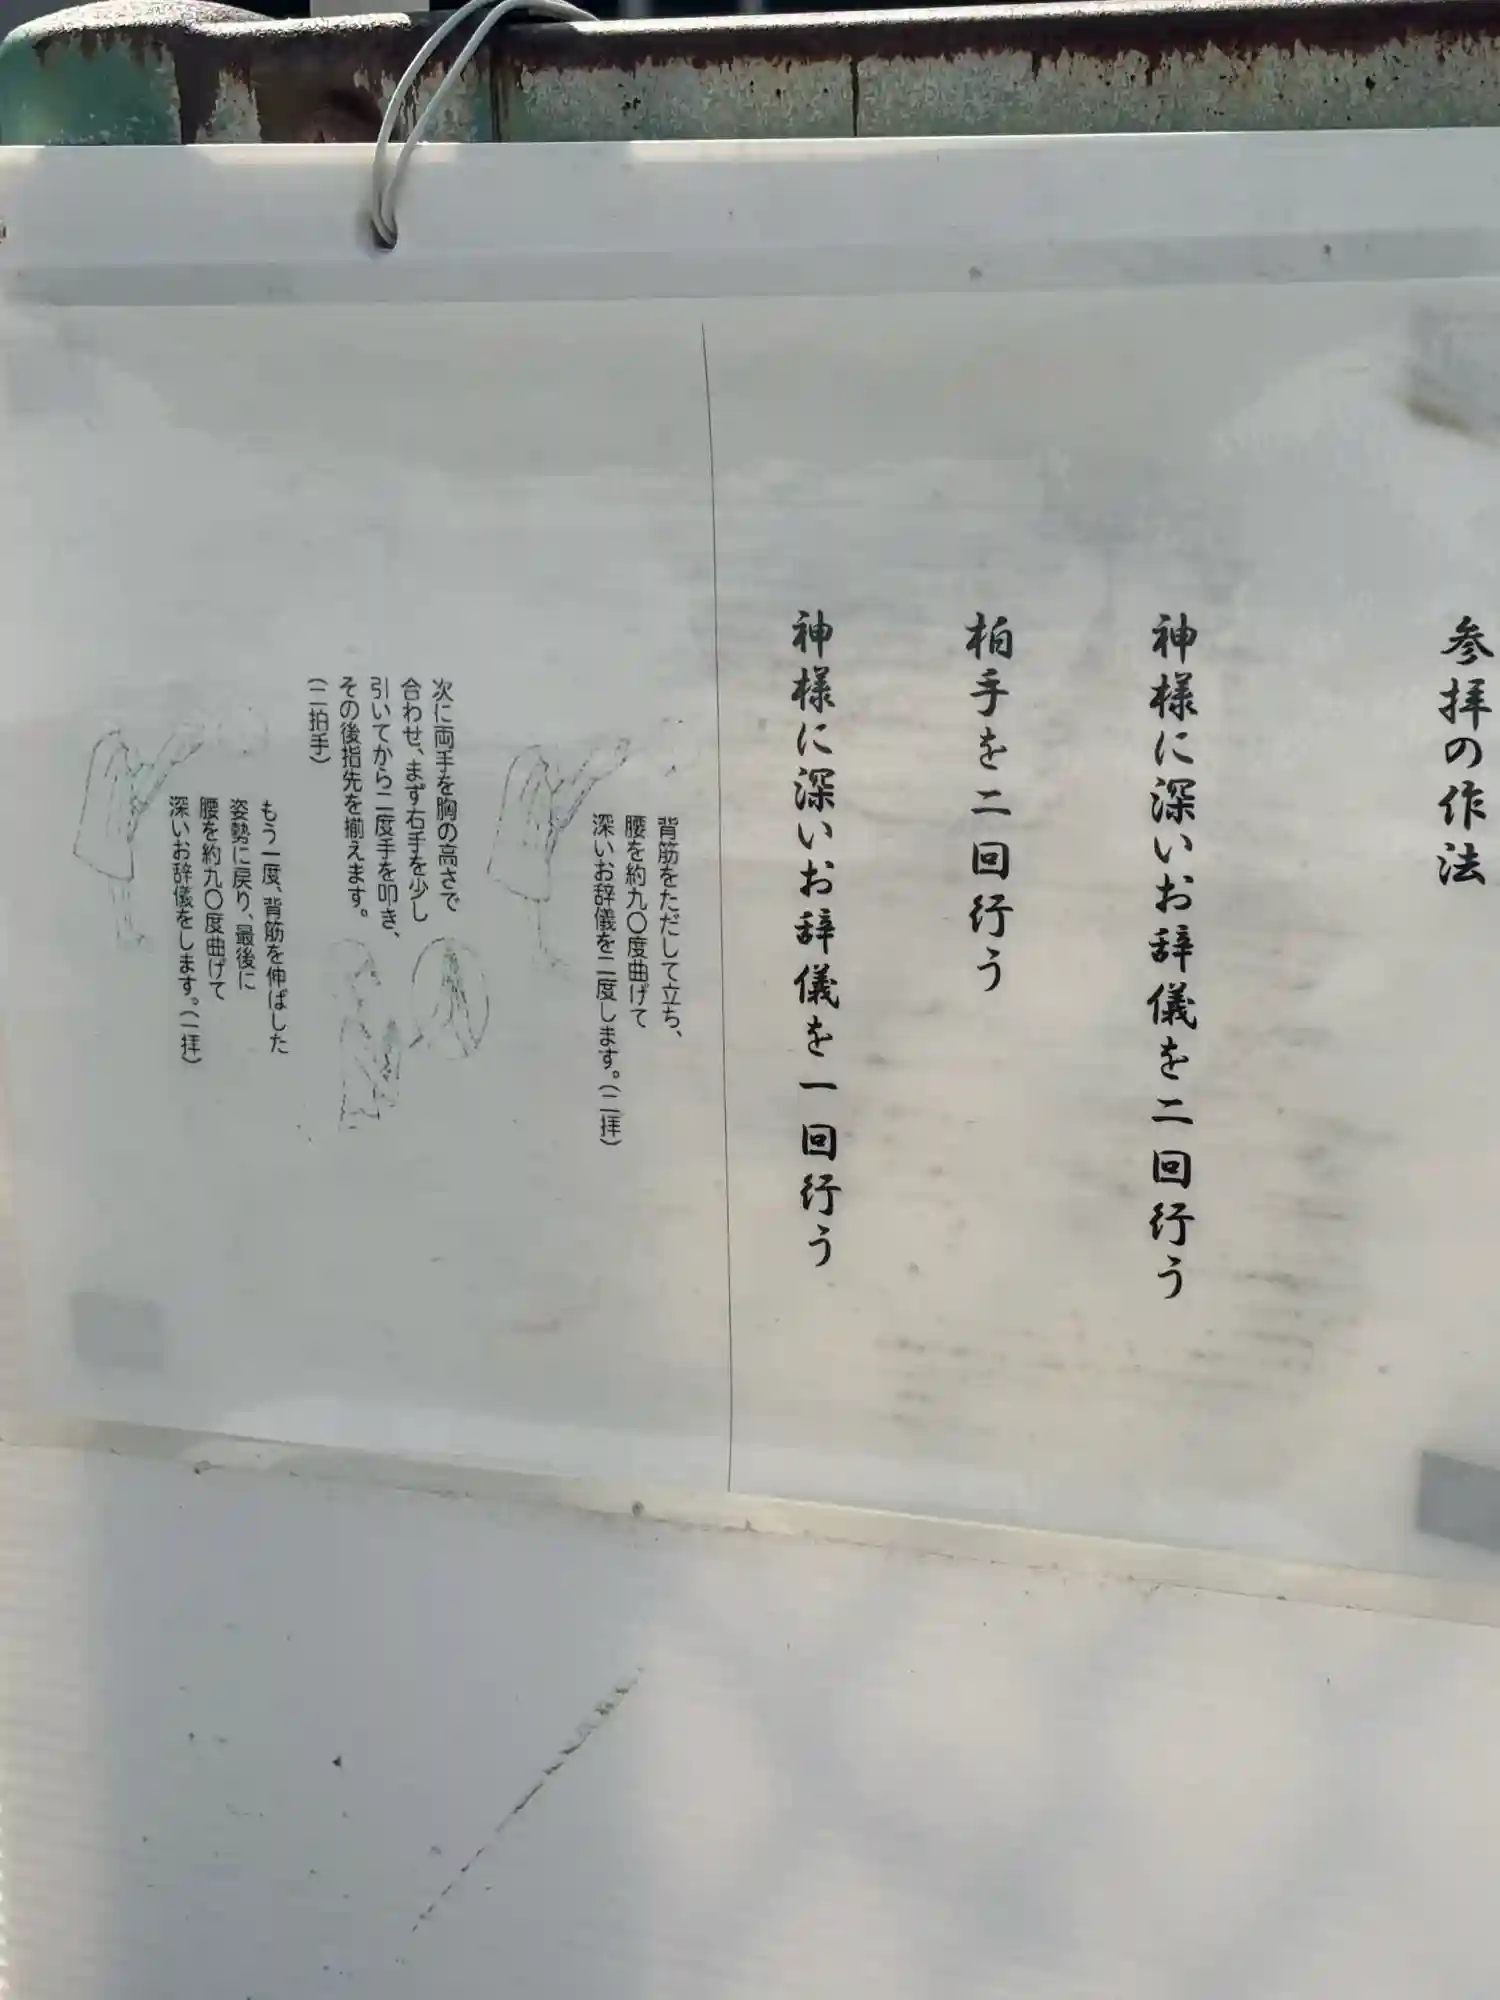 参拝の作法
神様に深いお辞儀を二回行う
柏手を二回行う
神様に深いお辞儀を一回行う
背筋をただして立ち、
腰を約九〇度曲げて
深いお辞儀を二度します。（二拝）
次に両手を胸の高さで
合わせ、まず右手を少し
引いてから二度手を叩き、
その後指先を揃えます。
（二拍手）
もう一度、背筋を伸ばした
姿勢に戻り、最後に
腰を約九〇度曲げて
深いお辞儀をします。（一拝）